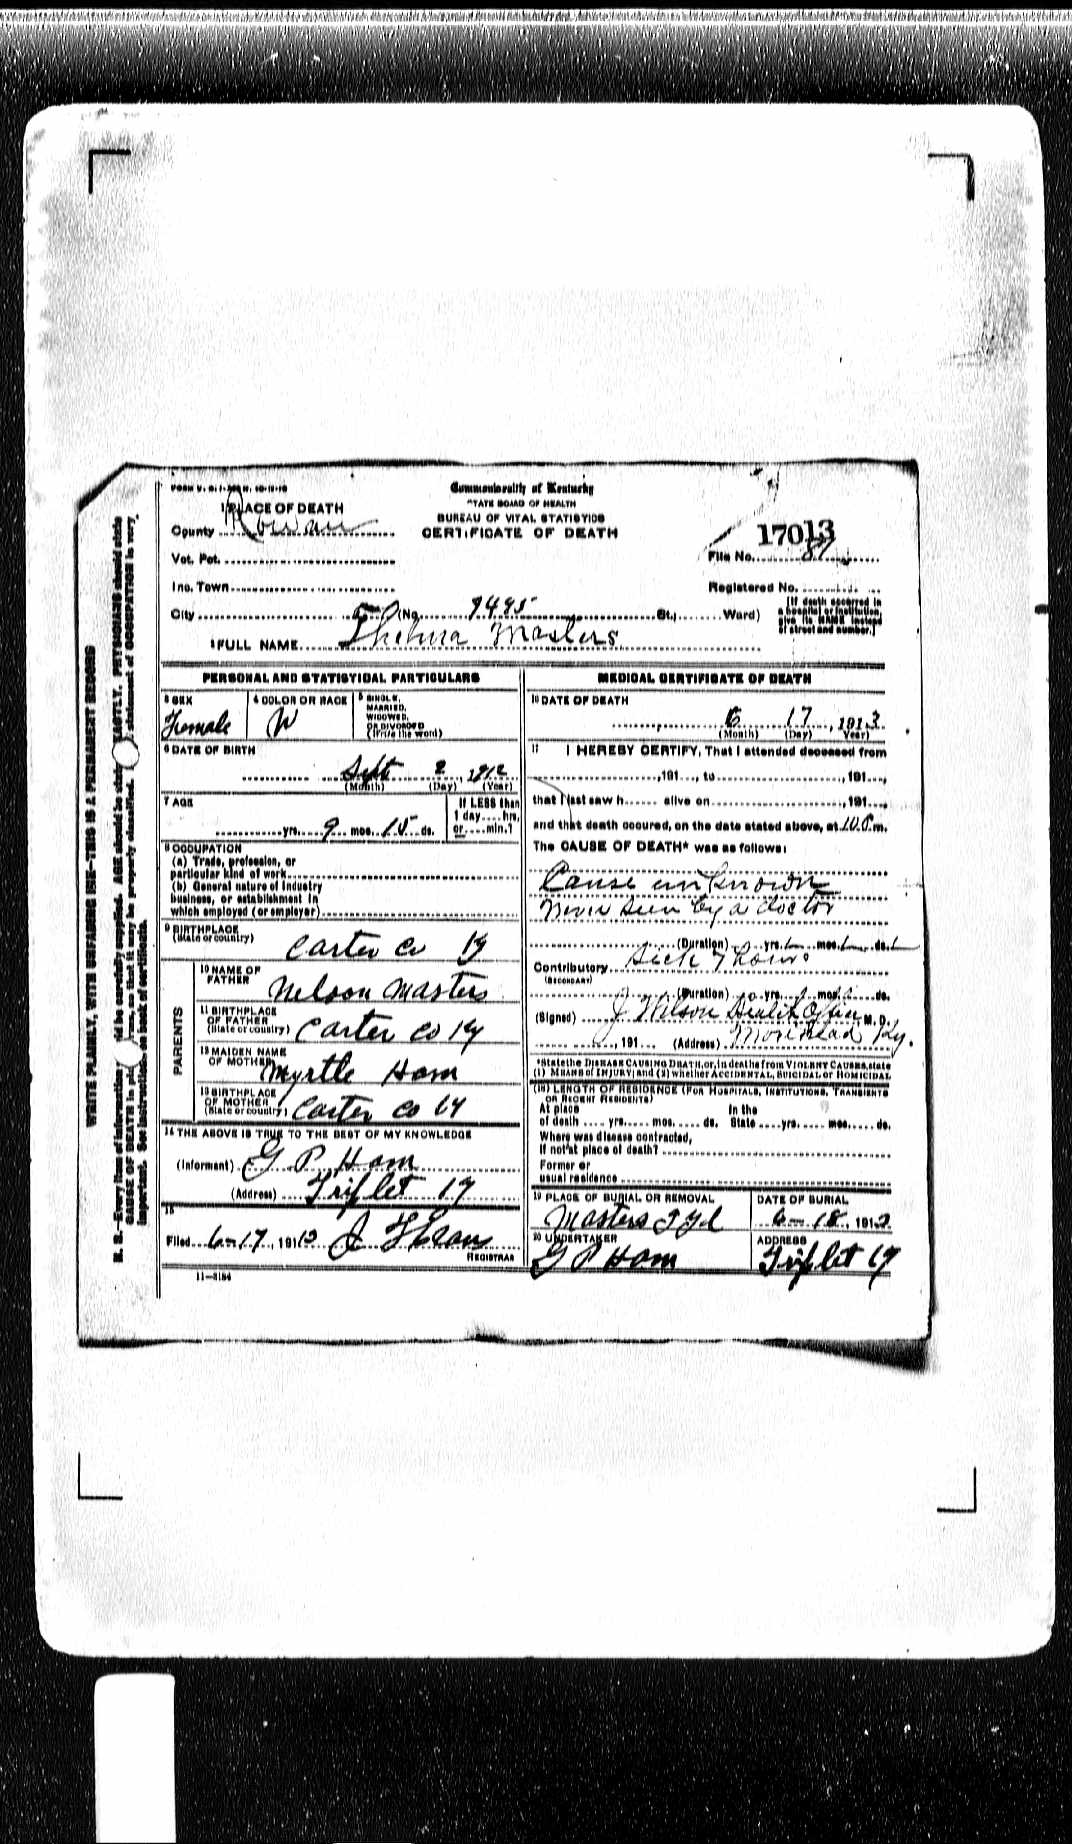 Commonwealth of Kentucky
STATE BOARD OF HEALTH
BUREAU OF VITAL STATISTICS
CERTIFICATE OF DEATH
1 PLACE OF DEATH
County Rowan
Vot. Pct.
Inc. Town
City (No. 9495 St.; Ward)
17013
File No. 87
Registered No.
[If death occurred in
a hospital or institution,
give its NAME instead
of street and number.]
2 FULL NAME Thelma Masters
PERSONAL AND STATISTICAL PARTICULARS
3 SEX
Female
4 COLOR OR RACE
W
5 SINGLE,
MARRIED,
WIDOWED,
OR DIVORCED
(Write the word)
6 DATE OF BIRTH
Sept 2, 1912
(Month) (Day) (Year)
7 AGE
yrs. 9 mos. 15 ds.
If LESS than
1 day hrs.
or min.?
8 OCCUPATION
(a) Trade, profession, or
particular kind of work
(b) General nature of industry
business, or establishment in
which employed (or employer)
9 BIRTHPLACE
(State or country)
Carter Co Ky
PARENTS
10 NAME OF
FATHER
Nelson Masters
11 BIRTHPLACE
OF FATHER
(State or country)
Carter Co Ky
12 MAIDEN NAME
OF MOTHER
Myrtle Ham
13 BIRTHPLACE
OF MOTHER
(State or country)
Carter Co Ky
14 THE ABOVE IS TRUE TO THE BEST OF MY KNOWLEDGE
(Informant) G P Ham
(Address) Triplet Ky
15
Filed 6-17, 1913 J
REGISTRAR
11-3184
MEDICAL CERTIFICATE OF DEATH
16 DATE OF DEATH
6 17, 1913
(Month) (Day) (Year)
17 I HEREBY CERTIFY, That I attended deceased from
, 191, to , 191,
that I last saw h alive on , 191,
and that death occured, on the date stated above, at 10 P.m.
The CAUSE OF DEATH* was as follows:
Cause unknown
Never seen by a doctor
(Duration) yrs. mos. ds.
Contributory Sick 7 hours
(SECONDARY)
(Duration) yrs. mos. ds.
(Signed) J Wilson Health Officer M. D.
, 191 (Address) Morehead Ky.
*State the DISEASE CAUSING DEATH, or, in deaths from VIOLENT CAUSES, state
(1) MEANS OF INJURY; and (2) whether ACCIDENTAL, SUICIDAL or HOMICIDAL
(18) LENGTH OF RESIDENCE (FOR HOSPITALS, INSTITUTIONS, TRANSIENTS
OR RECENT RESIDENTS)
At place In the
of death yrs. mos. ds. State yrs. mos. ds.
Where was disease contracted,
If not at place of death?
Former or
usual residence
19 PLACE OF BURIAL OR REMOVAL
Masters
DATE OF BURIAL
6-18, 1913
20 UNDERTAKER
G P Ham
ADDRESS
Triplet Ky
WRITE PLAINLY, WITH UNFADING INK—THIS IS A PERMANENT RECORD
N. B.—Every item of information should be carefully supplied. AGE should be stated EXACTLY. PHYSICIANS should state
CAUSE OF DEATH in plain terms, so that it may be properly classified. statement of OCCUPATION is very
important. See instructions on back of certificate.